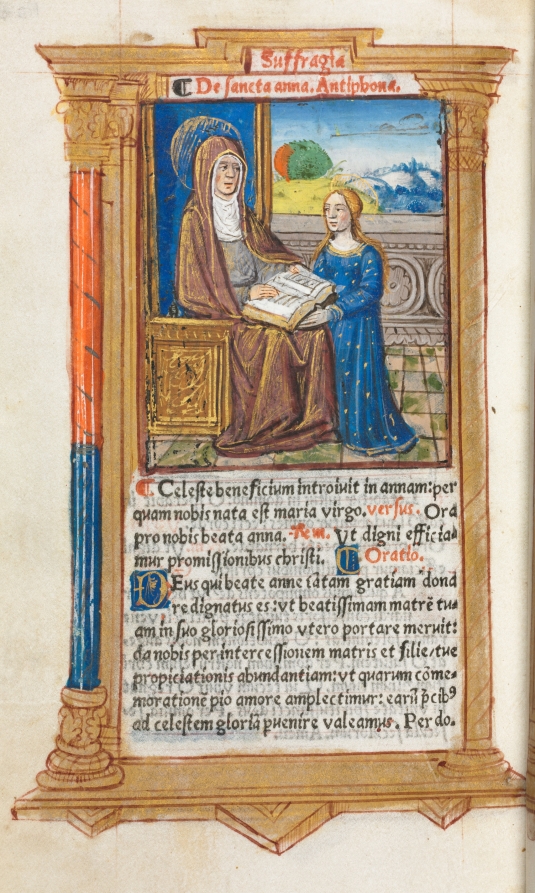 Suffragia
De sancta anna. Antiphona.
Celeste beneficium introiuit in annam: per
quam nobis nata est maria virgo. versus. Ora
pro nobis beata anna. Rem. Vt digni efficia
mur promissionibus christi. Oratio.
DEus qui beate anne tātam gratiam dona
re dignatus es: vt beatissimam matrē tu
am in suo gloriosissimo vtero portare meruit:
da nobis per intercessionem matris et filie, tue
propiciationis abundantiam: vt quarum cōme-
morationē pio amore amplectimur: earū p̄cibꝰ
ad celestem gloriā puenire valeamus. Per do.